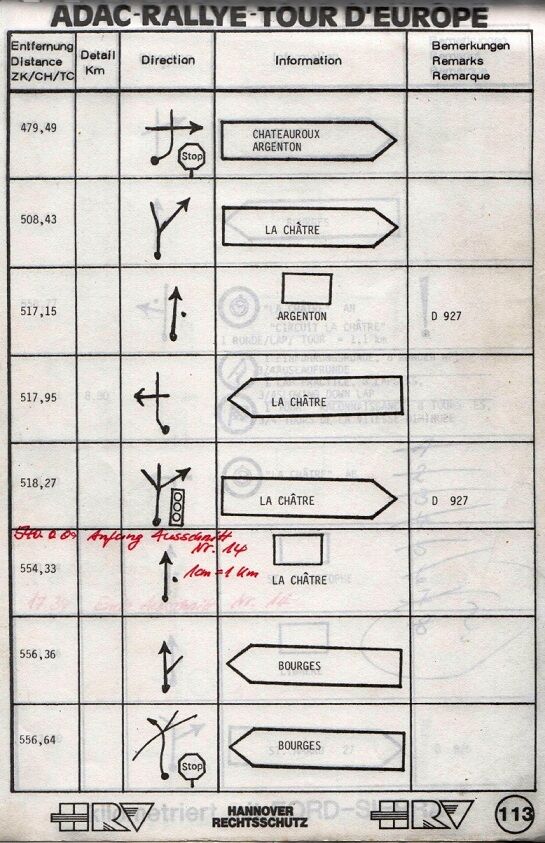 ADAC-RALLYE-TOUR D'EUROPE
Entfernung Detail Direction Information Bemerkungen
Distance Km Remarks
ZK/CH/TC Remarque
479,49 Stop CHATEAUROUX
ARGENTON
508,43 LA CHÂTRE
517,15 ARGENTON D 927
517,95 LA CHÂTRE
518,27 LA CHÂTRE D 927
Anfang Ausschnitt
Nr. 14
554,33 1cm=1 Km LA CHÂTRE
556,36 BOURGES
556,64 Stop BOURGES
HRV HANNOVER RECHTSSCHUTZ HRV 113